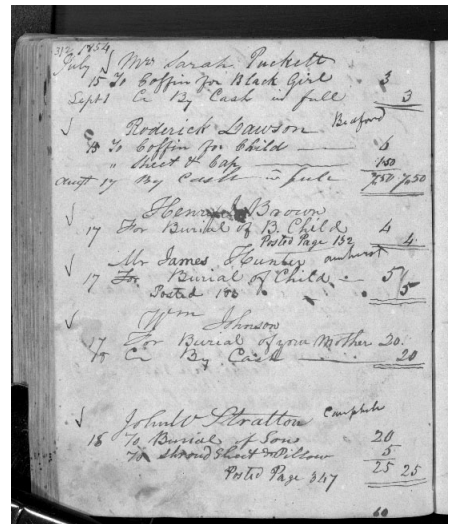 312 1854
July Mrs Sarah Puckett
15 To Coffin for Black Girl 3
Sept 1 Cr By Cash in full 3
Roderick Lawson Bedford
15 To Coffin for Child 6
" Sheet & Cap 1 50
Augt 17 By Cash in full 7 50 7 50
Henry Brown
17 For Burial of B. Child 4
Posted Page 152 4
Mr James Hunter Amherst
17 For Burial of Child 5
Posted 5
Wm Johnson
17 For Burial of your Mother 20
18 Cr By Cash 20
John W Stratton Campbell
18 To Burial of Son 20
To Shroud Sheet & Pillow 5
Posted Page 347 25 25
60